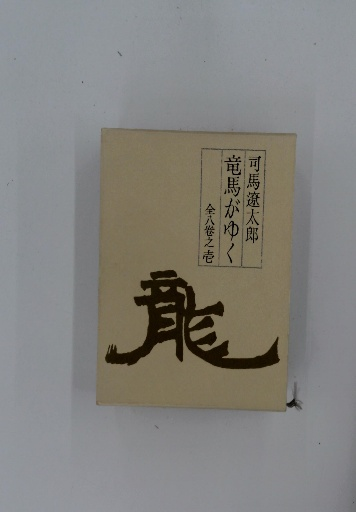 司馬遼太郎
竜馬がゆく
全八巻之壱
龍